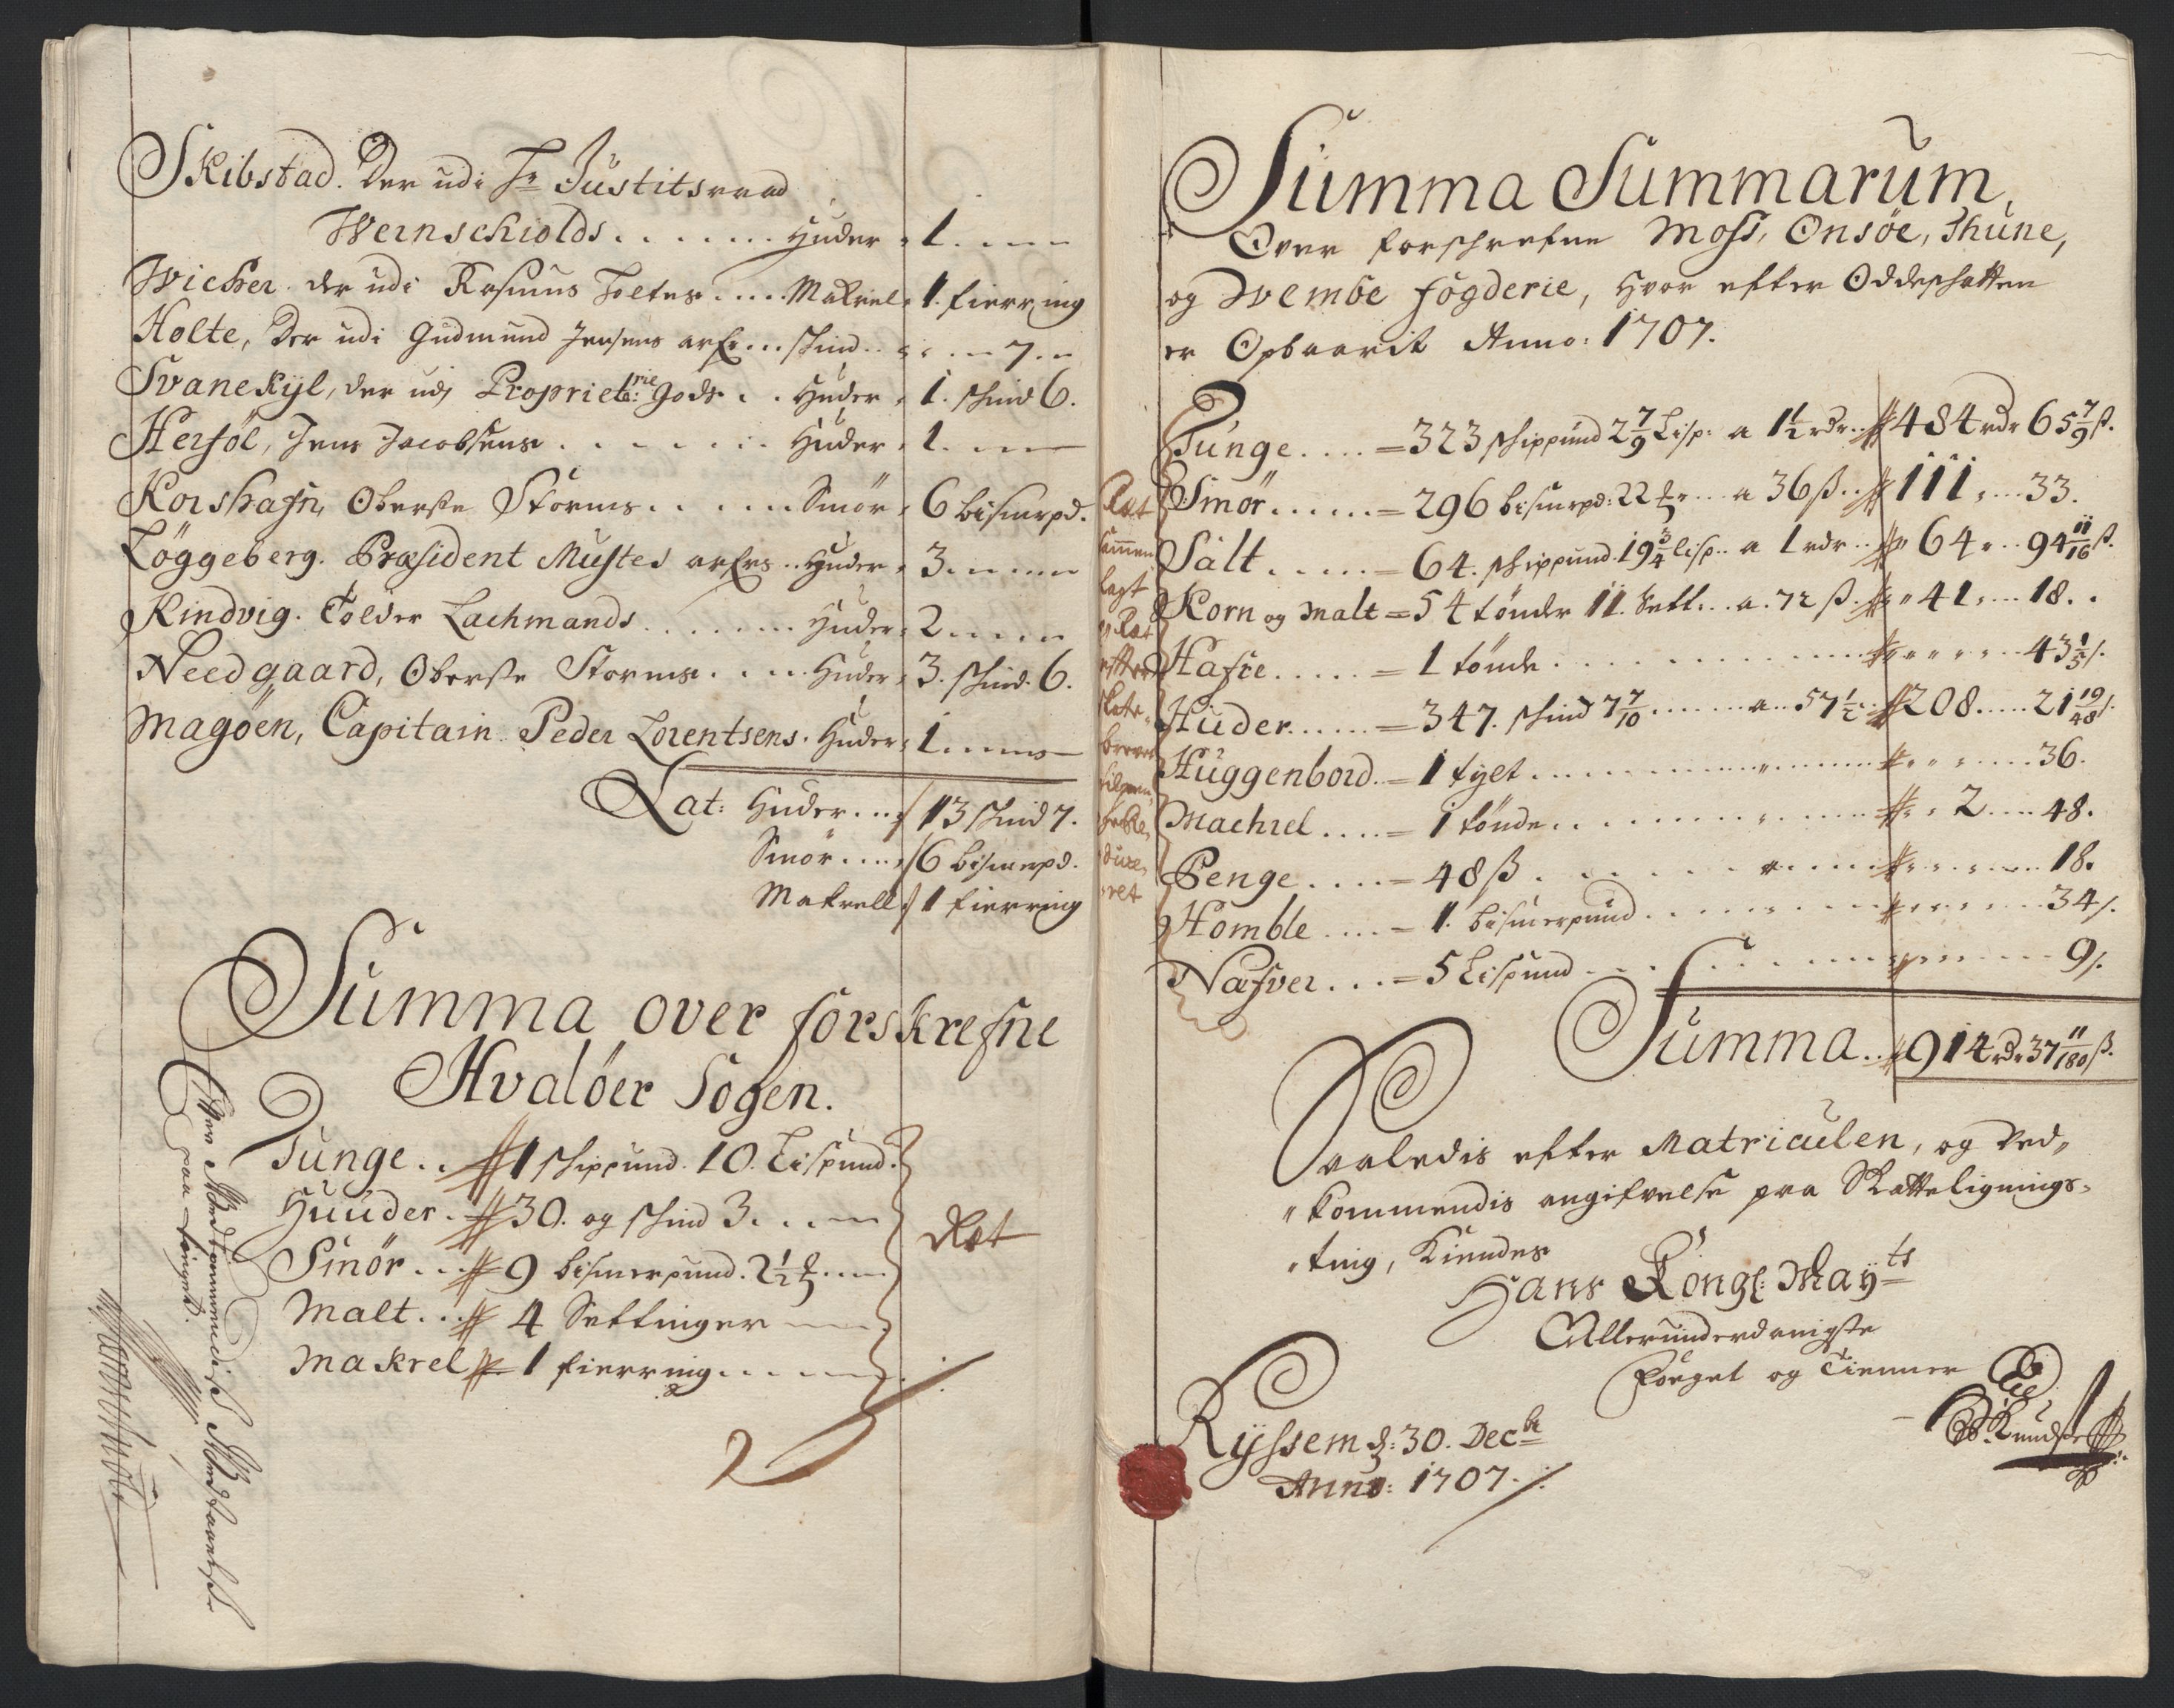 Skibstad. Der udi Hr Justitsraad
Wernschiolds . . . . . . . Huder = 1. - - -
Wicher. der udi Rasmus Toltes . . . . Makrel = 1. fierring
Holte, Der udi Gudmund Jensens arfr . . . skind . . = - - 7. -
Svanekÿl, der udj Propriet:rie Gods . . Huder = 1. skind 6.
Hersöl, Jens Jacobsens . . . . . . . Huder = 1. - -
Korshafn, Oberste Storms . . . . . . Smör = 6 bismrpd.
Löggeberg. Præsident Mustes arfrs . . Huder = 3. - - -
Kindvig. Tolder Lachmands . . . . . . . Huder = 2. - - -
Needgaard, Oberste Storms . . . . . Huder = 3. skind. 6.
Magöen, Capitain Peder Lorentsens. Huder = 1. - - -
Lat: Huder . . . 13 skind 7.
Smör . . . . 6 bismrpd.
Makrell 1 fierring
Summa over forskrefne
Hvalöer Sogen.
Tunge . . 1 skippund. 10. Lispund.
Huuder . 30. og skind 3. . . .
Smör . . . 9 bismerpund. 2 1/2 ℔ . . .
Malt . . . 4 Settinger
Makrel 1 fierring . . . .
Ræt
Efter Vedkommendis Vedtagelse
paa tinget.
Summa Summarum,
Over forschrefne Moss, Onsöe, Thune,
og Wembe fögderie, hvor efter Oddeskatten
er Opbaarit Anno: 1707.
Tunge . . . . = 323 skippund 2 7/9 Lisp: a 1 1/2 rdr . . 484 rdr 65 7/9 ß.
Smör . . . . . . = 296 bismrpd: 22 ℔ . . . a 36 ß . . 111 . . . 33.
Salt . . . . . = 64. skippund. 19 3/4 lisp . . a 1 rdr . . 64 . . . 94 11/16 ß.
Korn og Malt = 54 tönder 11. Sett . . . a. 72 ß. 41 . . . 18. .
Hafre . . . . . = 1 tönde . . . . . . . . 43 1/5 ß.
Huder . . . . . . = 347. skind 7 7/10 . . . . . . a . . 57 1/2 . . 208 . . . . . 21 19/48 ß.
Huggenbord . . = 1 tylt . . . . . . . . . 36.
Machrel . . . . = 1 tönde . . . . . . . . 2 . . . . 48.
Penge . . . . = 48 ß . . . . . . . . 18.
Homble . . . . = 1. bismerpund . . . . . . . 34 ß.
Nafver . . . = 5 Lispund . . . . . . . 9 ß.
Summa . . 914 rdr 37 11/180 ß.
Ræt
sammen
lagt
og Ræt
efter
skate
brevet
Saaledis efter Matriculen, og Ved„
„kommendis angifvelse paa Skattelignings„
„ting, Kiendes
Hans Kongl: Mayts
Allerunderdanigste
Foeget og Tienner
Ryssem d: 30. Decbr
Anno: 1707.